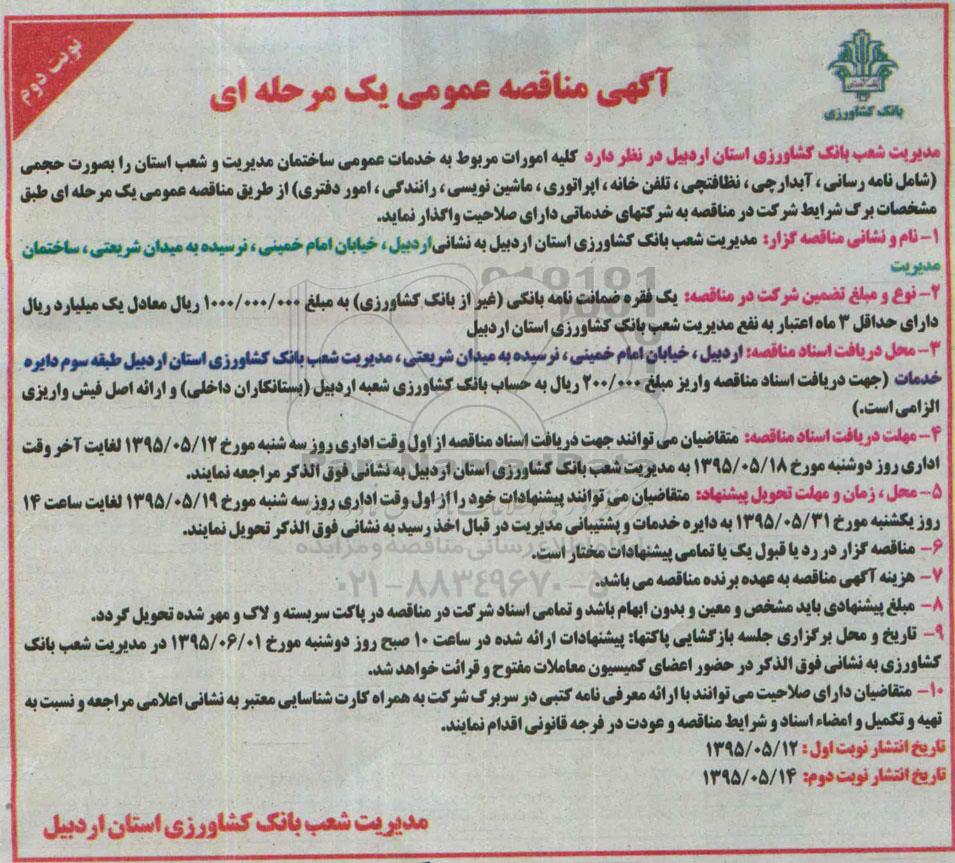 نوبت دوم
بانک کشاورزی
آگهی مناقصه عمومی یک مرحله ای
مدیریت شعب بانک کشاورزی استان اردبیل در نظر دارد کلیه امورات مربوط به خدمات عمومی ساختمان مدیریت و شعب استان را بصورت حجمی
(شامل نامه رسانی ، آبدارچی ، نظافتچی ، تلفن خانه ، اپراتوری ، ماشین نویسی ، رانندگی ، امور دفتری) از طریق مناقصه عمومی یک مرحله ای طبق
مشخصات برگ شرایط شرکت در مناقصه به شرکتهای خدماتی دارای صلاحیت واگذار نماید.
۱- نام و نشانی مناقصه گزار: مدیریت شعب بانک کشاورزی استان اردبیل به نشانی اردبیل ، خیابان امام خمینی ، نرسیده به میدان شریعتی ، ساختمان
مدیریت
۲- نوع و مبلغ تضمین شرکت در مناقصه: یک فقره ضمانت نامه بانکی (غیر از بانک کشاورزی) به مبلغ ۱۰۰۰/۰۰۰/۰۰۰ ریال معادل یک میلیارد ریال
دارای حداقل ۳ ماه اعتبار به نفع مدیریت شعب بانک کشاورزی استان اردبیل
۳- محل دریافت اسناد مناقصه: اردبیل ، خیابان امام خمینی ، نرسیده به میدان شریعتی ، مدیریت شعب بانک کشاورزی استان اردبیل طبقه سوم دایره
خدمات (جهت دریافت اسناد مناقصه واریز مبلغ ۲۰۰/۰۰۰ ریال به حساب بانک کشاورزی شعبه اردبیل (بستانکاران داخلی) و ارائه اصل فیش واریزی
الزامی است.)
۴- مهلت دریافت اسناد مناقصه: متقاضیان می توانند جهت دریافت اسناد مناقصه از اول وقت اداری روز سه شنبه مورخ ۱۳۹۵/۰۵/۱۲ لغایت آخر وقت
اداری روز دوشنبه مورخ ۱۳۹۵/۰۵/۱۸ به مدیریت شعب بانک کشاورزی استان اردبیل به نشانی فوق الذکر مراجعه نمایند.
۵- محل ، زمان و مهلت تحویل پیشنهاد: متقاضیان می توانند پیشنهادات خود را از اول وقت اداری روز سه شنبه مورخ ۱۳۹۵/۰۵/۱۹ لغایت ساعت ۱۴
روز یکشنبه مورخ ۱۳۹۵/۰۵/۳۱ به دایره خدمات و پشتیبانی مدیریت در قبال اخذ رسید به نشانی فوق الذکر تحویل نمایند.
۶- مناقصه گزار در رد یا قبول یک یا تمامی پیشنهادات مختار است.
۷- هزینه آگهی مناقصه به عهده برنده مناقصه می باشد.
۰۲۱-۸۸۳۴۹۶۷۰-۵
۸- مبلغ پیشنهادی باید مشخص و معین و بدون ابهام باشد و تمامی اسناد شرکت در مناقصه در پاکت سربسته و لاک و مهر شده تحویل گردد.
۹- تاریخ و محل برگزاری جلسه بازگشایی پاکتها: پیشنهادات ارائه شده در ساعت ۱۰ صبح روز دوشنبه مورخ ۱۳۹۵/۰۶/۰۱ در مدیریت شعب بانک
کشاورزی به نشانی فوق الذکر در حضور اعضای کمیسیون معاملات مفتوح و قرائت خواهد شد.
۱۰- متقاضیان دارای صلاحیت می توانند با ارائه معرفی نامه کتبی در سربرگ شرکت به همراه کارت شناسایی معتبر به نشانی اعلامی مراجعه و نسبت به
تهیه و تکمیل و امضاء اسناد و شرایط مناقصه و عودت در فرجه قانونی اقدام نمایند.
تاریخ انتشار نوبت اول : ۱۳۹۵/۰۵/۱۲
تاریخ انتشار نوبت دوم: ۱۳۹۵/۰۵/۱۴
مدیریت شعب بانک کشاورزی استان اردبیل